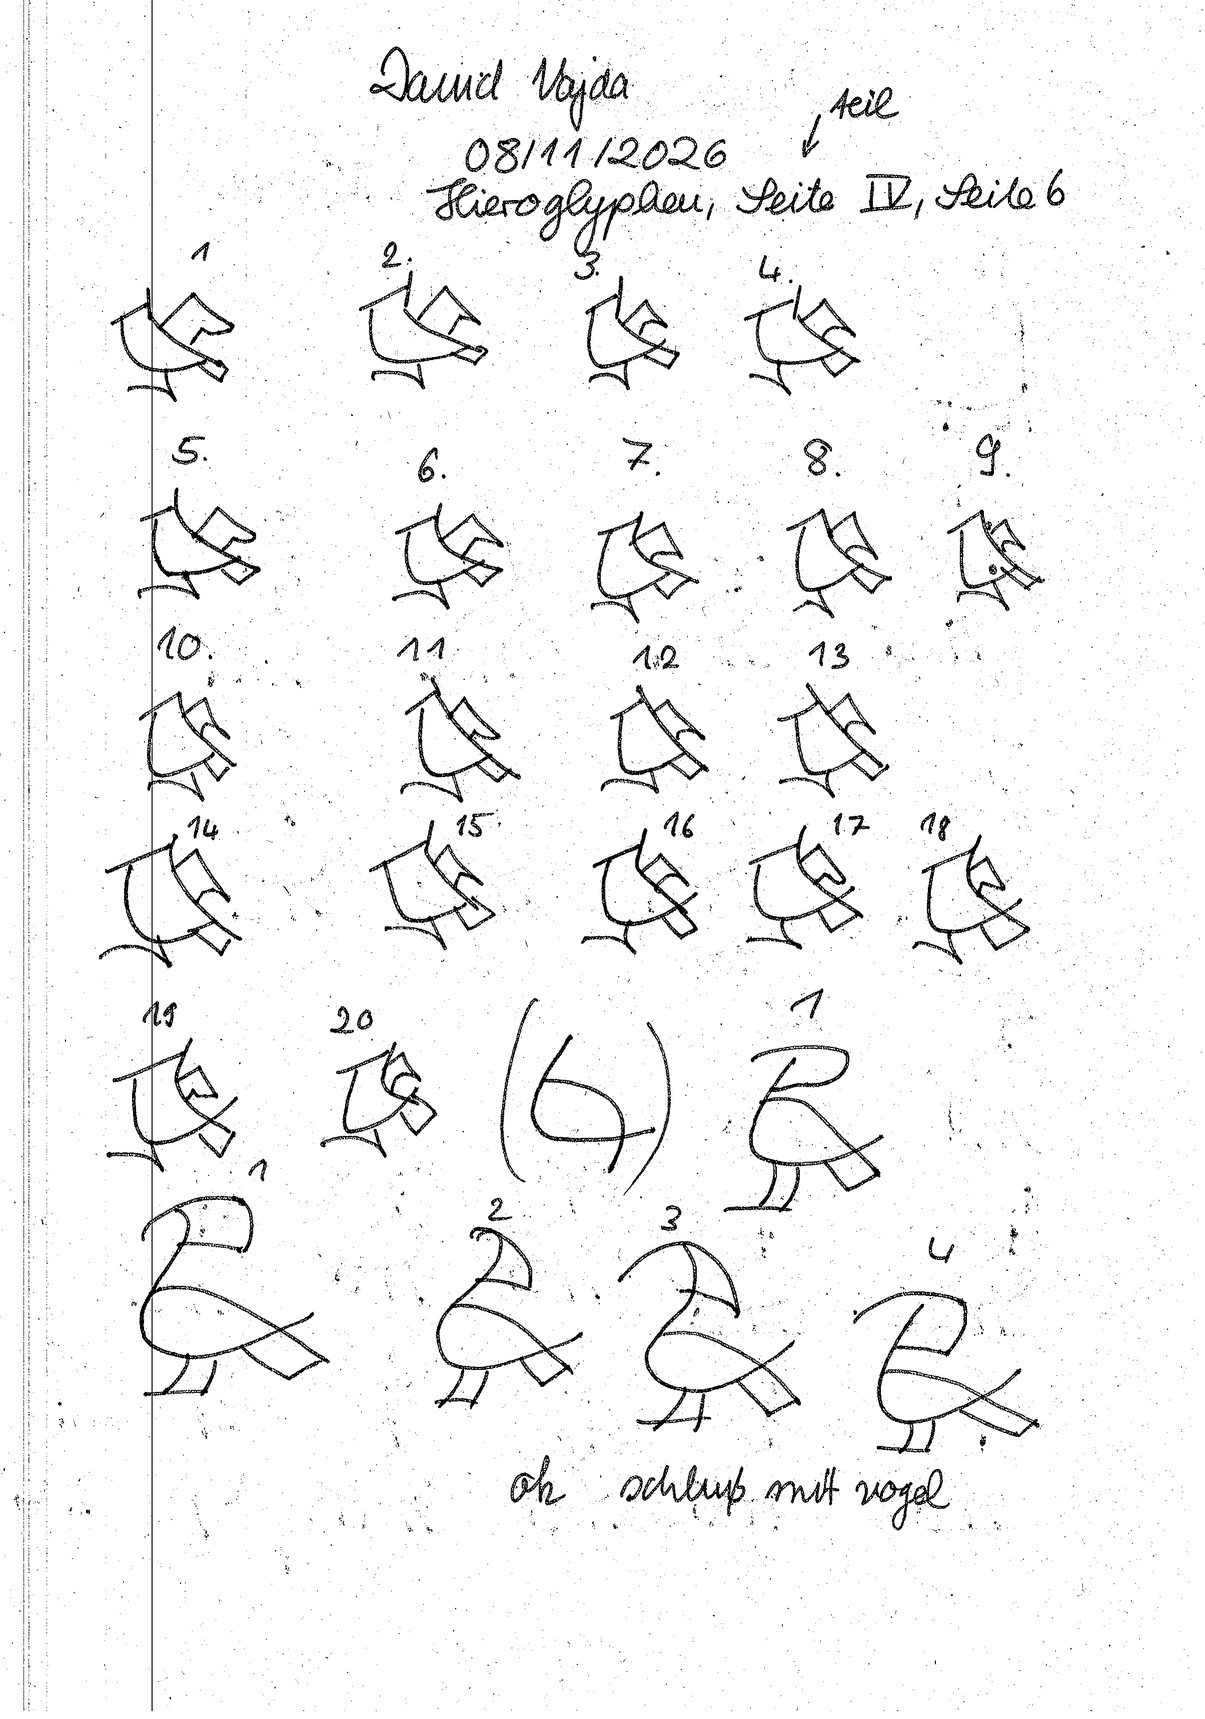 David Vajda
teil
08/11/2026
Hieroglyphen, Seite IV, Seite 6
1 2. 3. 4.
5. 6. 7. 8. 9.
10. 11 12 13
14 15 16 17 18
19 20 1
1 2 3 4
ok schluß mit vogel